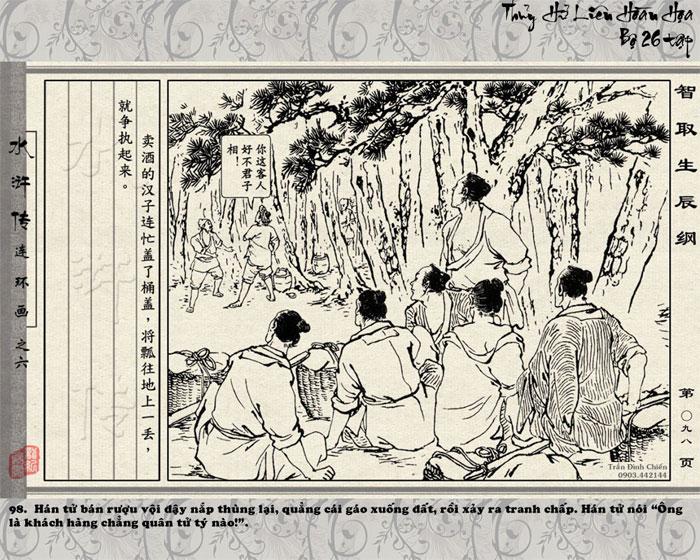 Thủy Hử Liên Hoàn Họa
Bộ 26 tập
智取生辰纲
第〇九八页
你这客人
好不君子
相！
卖酒的汉子连忙盖了桶盖，将瓢往地上一丢，
就争执起来。
水浒传
水浒传连环画之六
Trần Đình Chiến
0903.442144
98. Hán tử bán rượu vội đậy nắp thùng lại, quẳng cái gáo xuống đất, rồi xảy ra tranh chấp. Hán tử nói “Ông
là khách hàng chẳng quân tử tý nào!”.